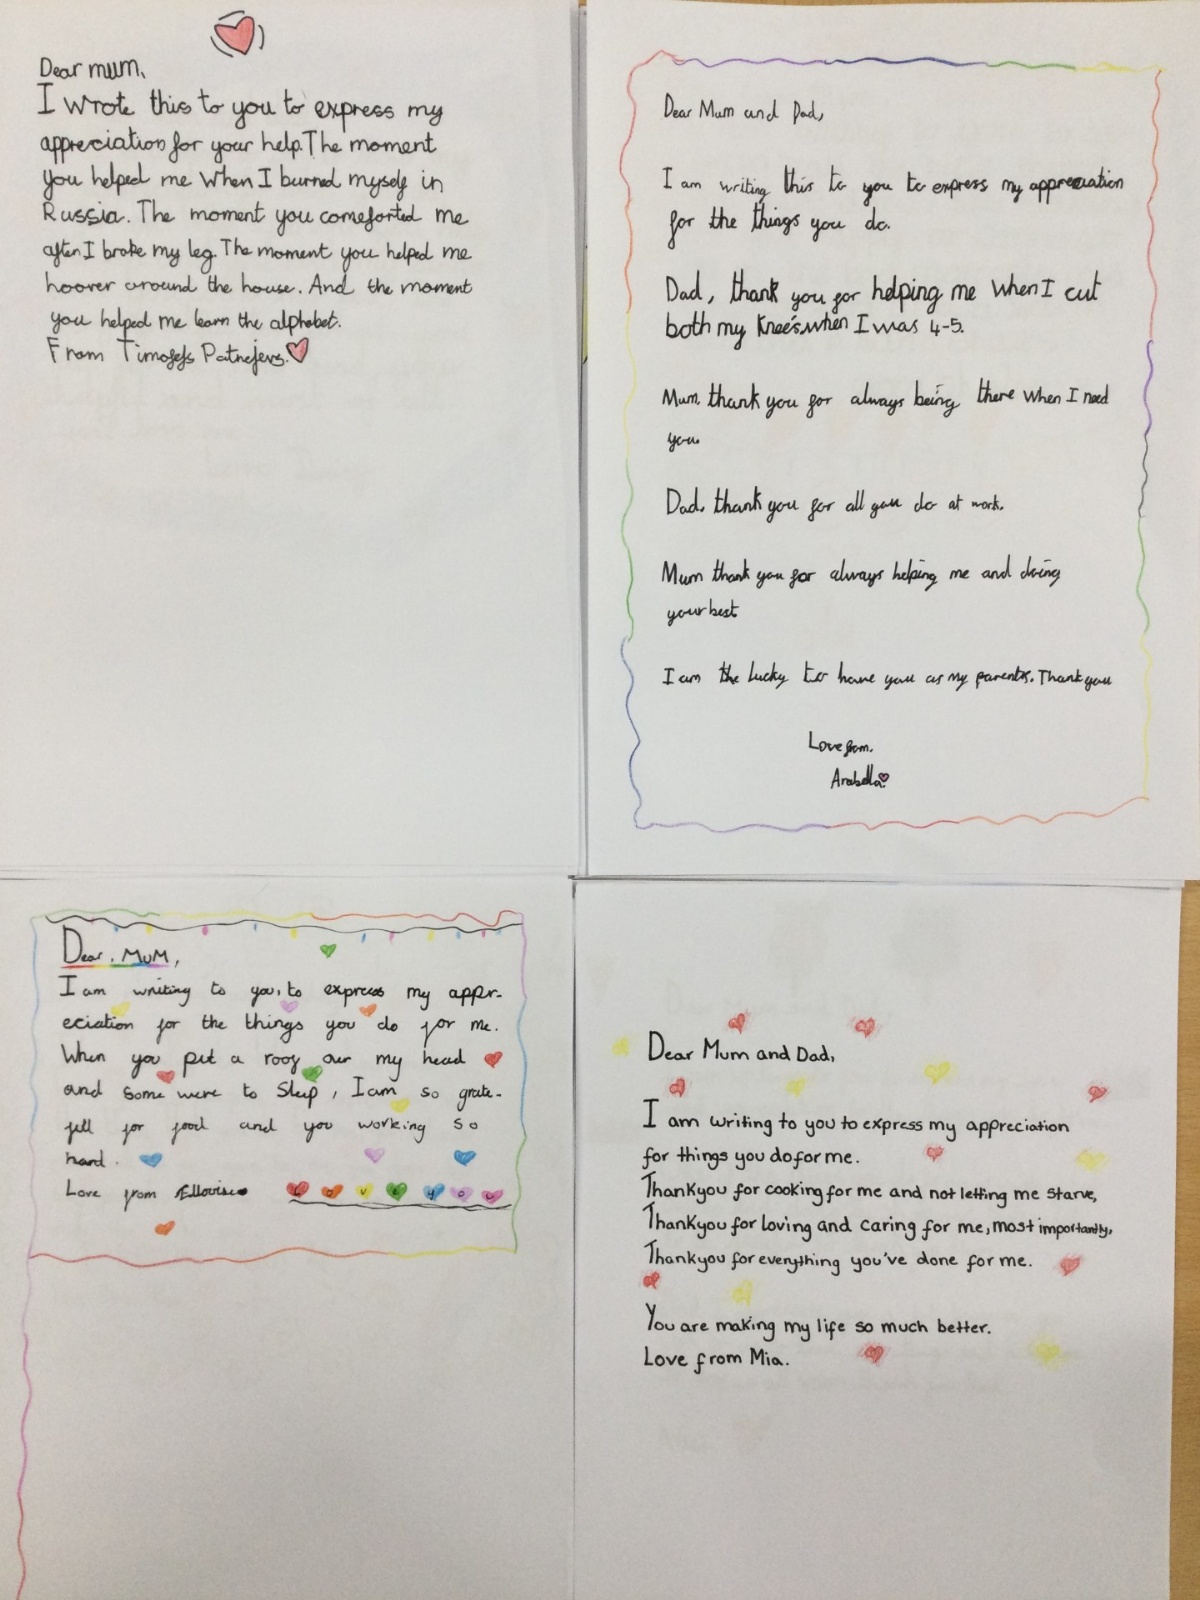 Dear mum,
I wrote this to you to express my
appreciation for your help. The moment
you helped me when I burned myself in
Russia. The moment you comeforted me
after I broke my leg. The moment you helped me
hoover around the house. And the moment
you helped me learn the alphabet.
From Timofejs
Dear Mum and Dad,
I am writing this to you to express my appreciation
for the things you do.
Dad, thank you for helping me when I cut
both my knee's when I was 4-5.
Mum, thank you for always being there when I need
you.
Dad, thank you for all you do at work.
Mum thank you for always helping me and doing
your best
I am the lucky to have you as my parents. Thank you
Love from,
Arabella
Dear, MUM,
I am writing to you, to express my appr-
eciation for the things you do for me.
When you put a roof over my head
and some were to sleep, I am so grate-
full for food and you working so
hard.
Love from LOVE YOU
Dear Mum and Dad,
I am writing to you to express my appreciation
for things you do for me.
Thankyou for cooking for me and not letting me starve,
Thankyou for loving and caring for me, most importantly,
Thankyou for everything you've done for me.
You are making my life so much better.
Love from Mia.